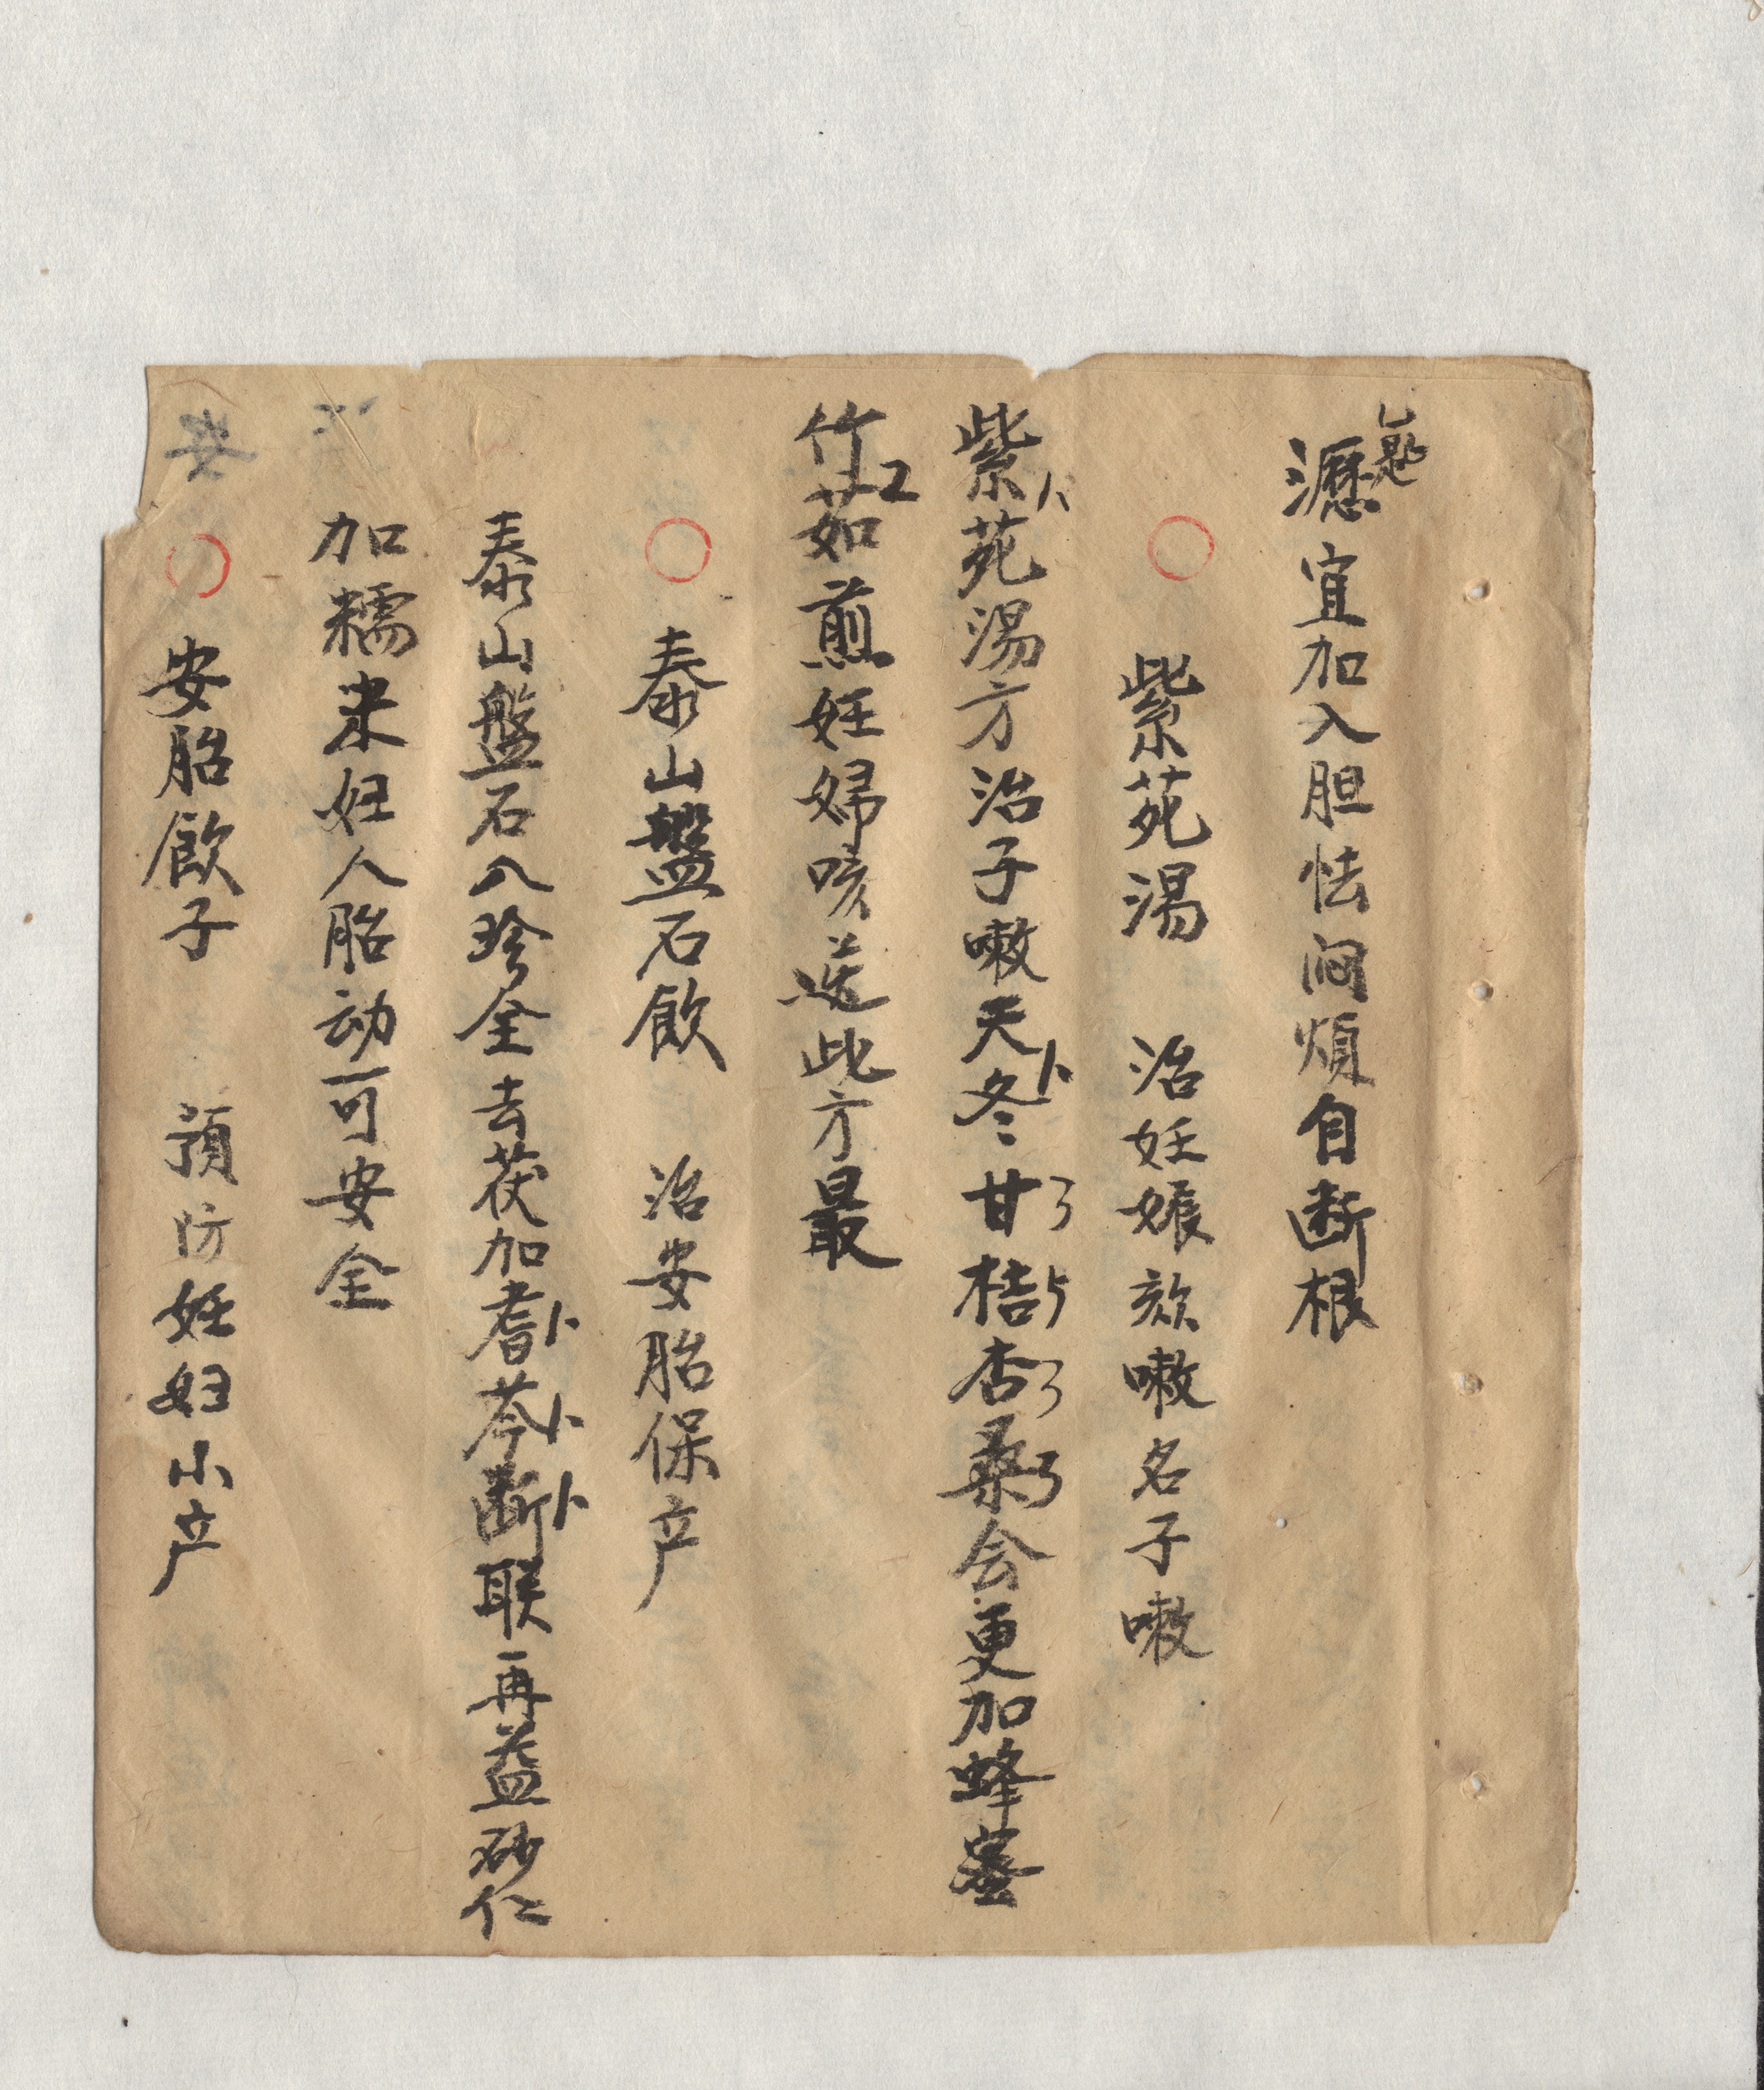 瀝匕匙宜加入胆怯闷煩自断根
紫苑湯 治妊娠欬嗽名子嗽
紫苑湯方治子嗽天冬甘桔杏桑会更加蜂蜜
竹茹煎妊婦咳逆此方最
泰山盤石飲 治安胎保产
泰山盤石八珍全去茯加耆芩断联再益砂仁
加糯米妊人胎动可安全
安胎飲子 預防妊妇小产